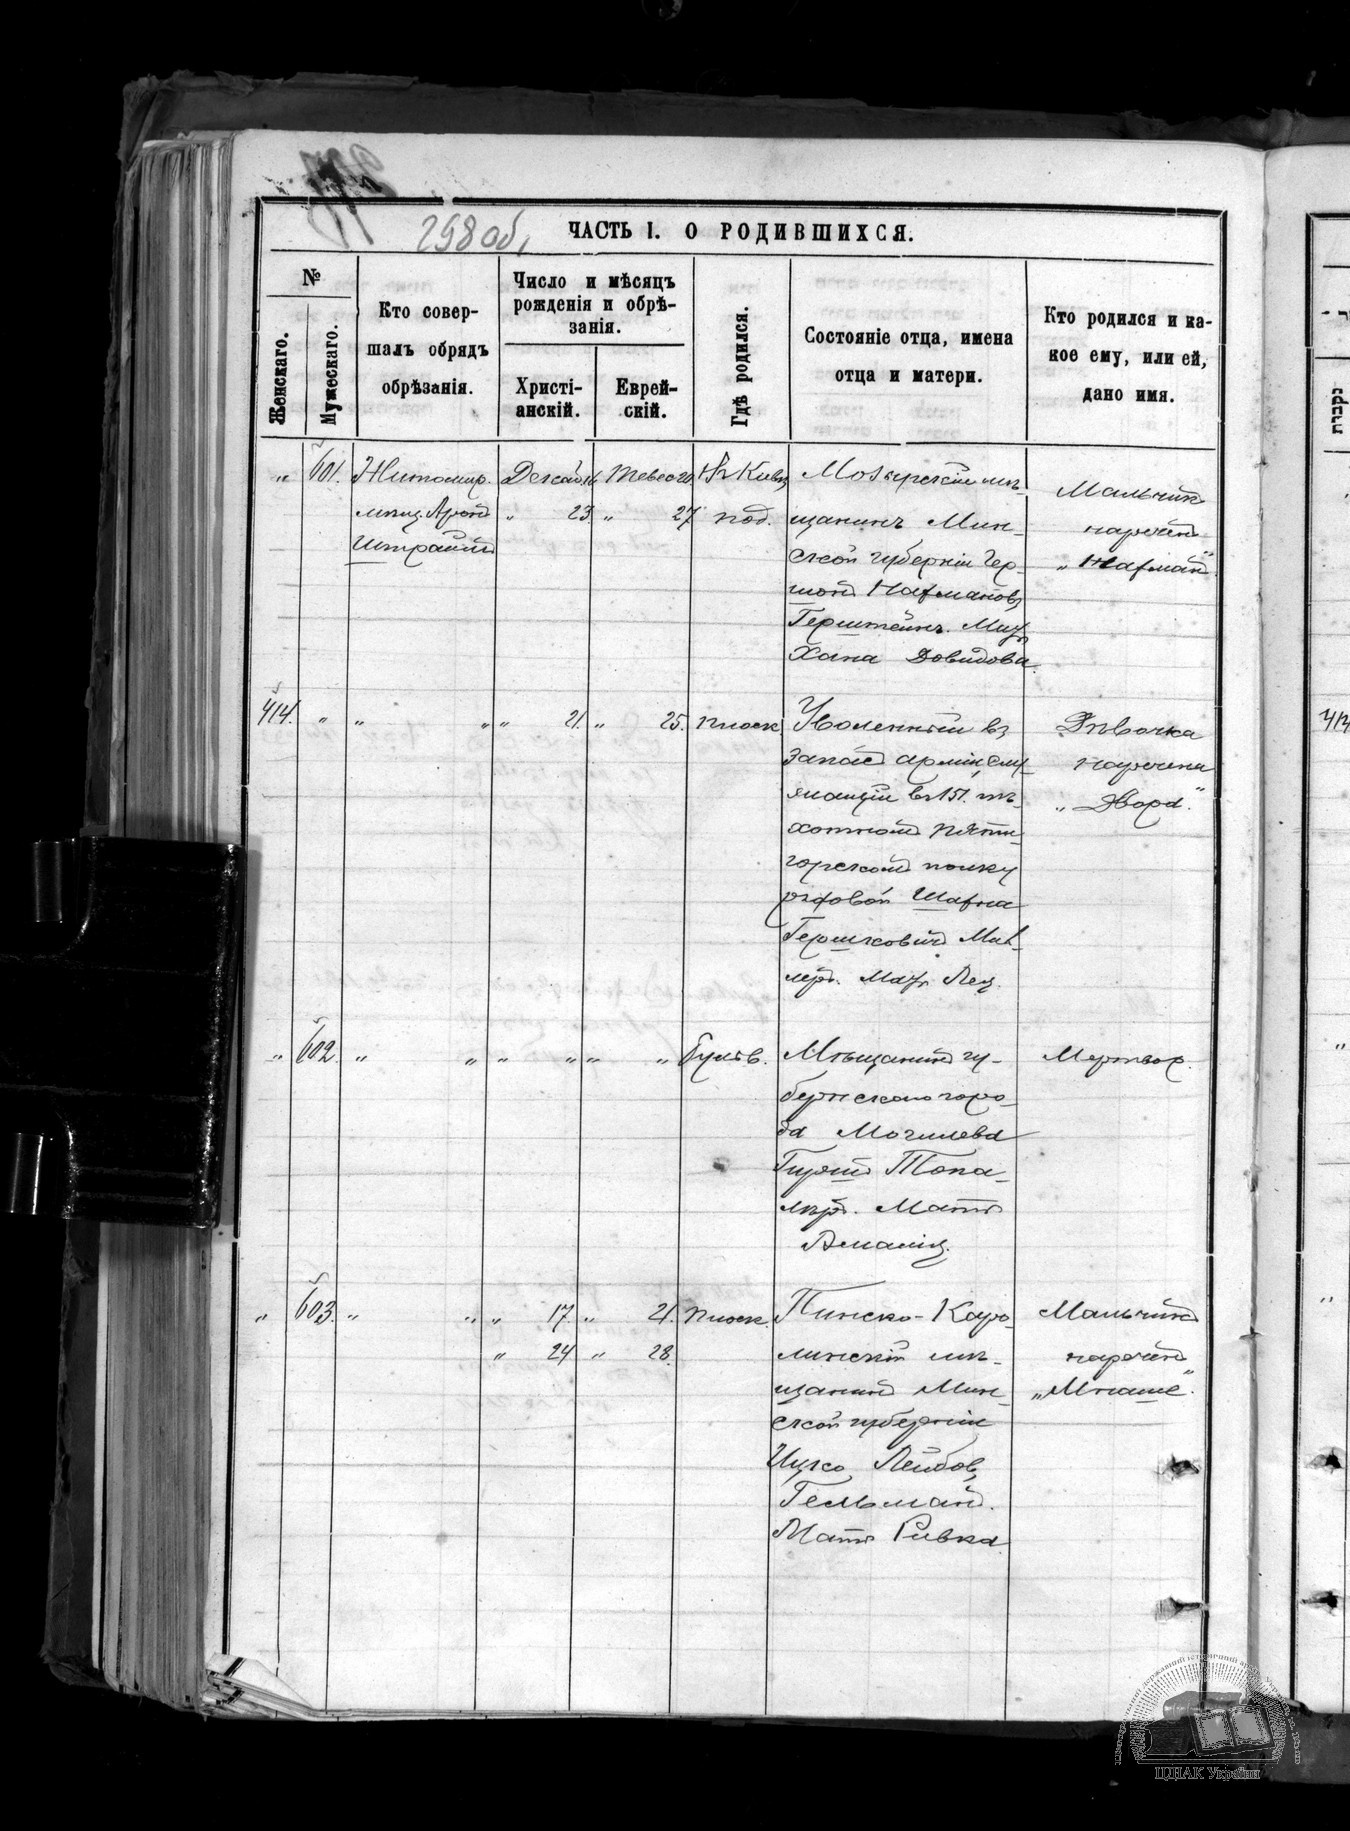 298 об.
ЧАСТЬ I. О РОДИВШИХСЯ.
№
Женскаго.
Мужескаго.
Кто совер-
шалъ обрядъ
обрѣзанія.
Число и мѣсяцъ
рожденія и обрѣ-
занія.
Христі-
анскій.
Еврей-
скій.
Гдѣ родился.
Состояніе отца, имена
отца и матери.
Кто родился и ка-
кое ему, или ей,
дано имя.
" 601. Житомир.
мѣщ. Аронъ
16 Тевес 20
" 23. " 27
под.
Мозырскій мѣ-
щанинъ Мин-
ской губерніи Гер-
шонъ Нахмановъ
Герштейнъ. Мать
Хана Довидова
Мальчикъ
нареченъ
"Нахманъ".
414. " " " " 21. " 25. Плоск.
Уволенный въ
запасъ арміи, слу-
жащій въ 151. пѣ-
хотномъ Пяти-
горскомъ полку
рядовой Шахна
Гершковичъ Мил-
леръ. Мать Лея.
Дѣвочка
наречена
"Двора".
" 602. " " " " " " Бульв.
Мѣщанинъ гу-
бернскаго горо-
да Могилева
Мать
Мертвор.
" 603. " " " 17. " 21. Плоск.
" 24 " 28.
Пинско-Каро-
линскій мѣ-
щанинъ Мин-
ской губерніи
Ицко Лейбов.
Гельманъ.
Мать Ривка
Мальчикъ
нареченъ
"Мнаше".
ЦДІАК України